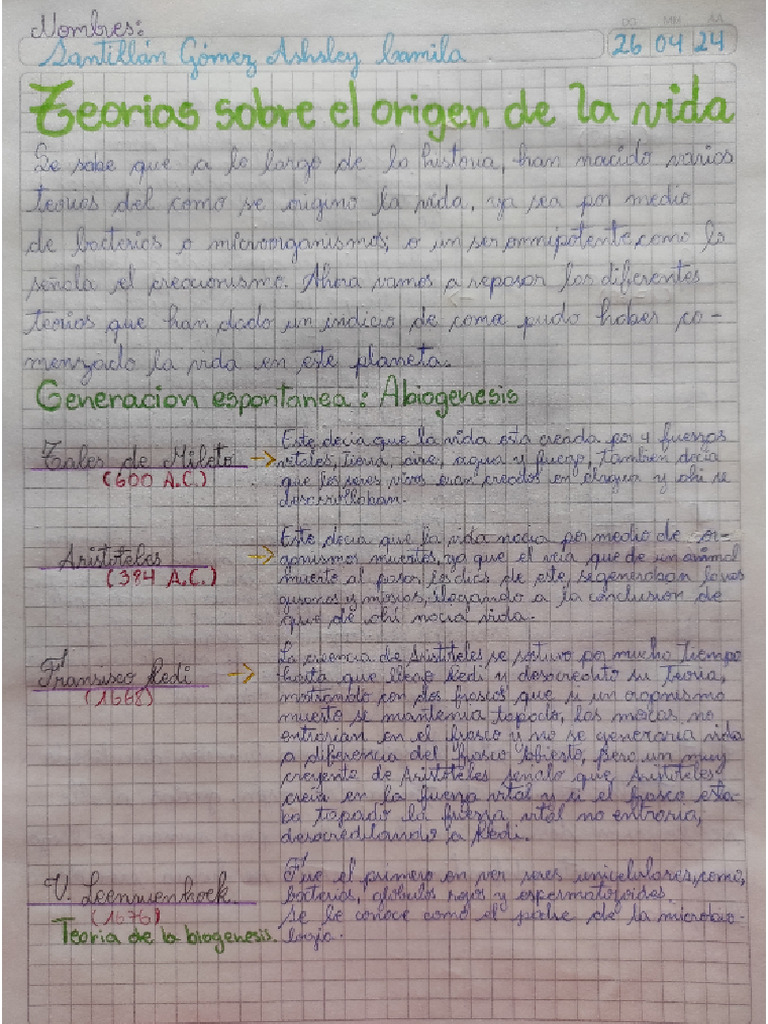 Nombres:
DD MM AA
Santillán Gómez Ashsley Camila
26 04 24
Teorias sobre el origen de la vida
Se sabe que a lo largo de la historia, han nacido varios
teorias del como se origino la vida, ya sea por medio
de bacterias o microorganismos; o un ser omnipotente como lo
señala el creacionismo. Ahora vamos a repasar los diferentes
teorias que han dado un indicio de como pudo haber co-
menzado la vida en este planeta.
Generacion espontanea: Abiogenesis
Tales de Mileto
(600 A.C.)
Este decia que la vida esta creada por 4 fuerzas
vitales, tierra, aire, agua y fuego, tambien decia
que los seres vivos eran creados en el agua y ahi se
desarrollaban.
Aristoteles
(384 A.C.)
Este decia que la vida nacia por medio de or-
ganismos muertos, ya que el veia que de un animal
muerto al pasar los dias de este, se generaban
gusanos y moscas, llegando a la conclusion de
que de ahi nacia vida.
Fransisco Redi
(1668)
La creencia de Aristoteles se sostuvo por mucho tiempo
hasta que llego Redi y desacredito su teoria,
mostrando con dos frascos que si un organismo
muerto se mantenia tapado, las moscas no
entrarian en el frasco y no se generaria vida
a diferencia del frasco abierto, pero un muy
creyente de Aristoteles señalo que Aristoteles
creia en la fuerza vital y si el frasco esta-
ba tapado la fuerza vital no entraria,
desacreditando a Redi.
V. Leenwenhoek
(1676)
Fue el primero en ver seres unicelulares, como,
bacterias, globulos rojos y espermatozoides.
Se le conoce como el padre de la microbio-
logia.
Teoria de la biogenesis.